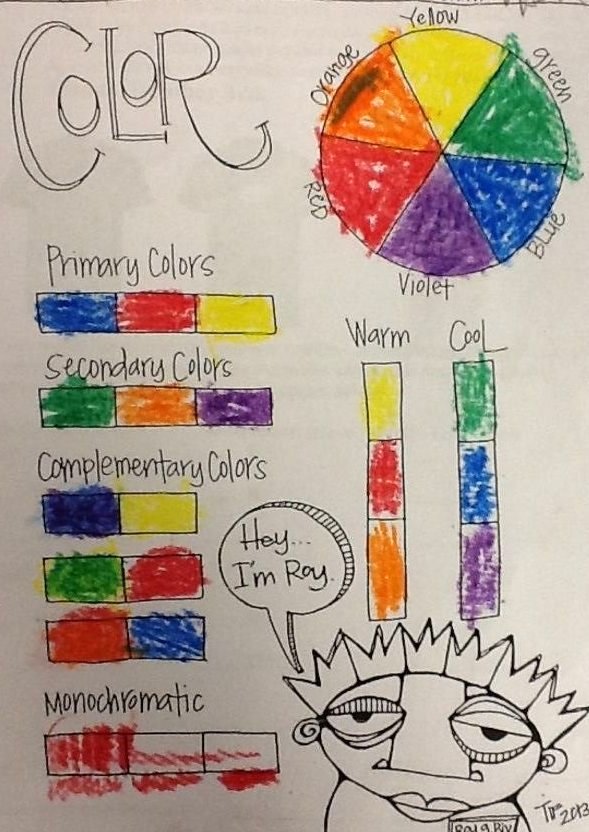 Color
Yellow
Orange
green
Red
Blue
Violet
Primary Colors
Secondary Colors
Complementary Colors
Monochromatic
Warm
Cool
Hey...
I'm Roy.
2013